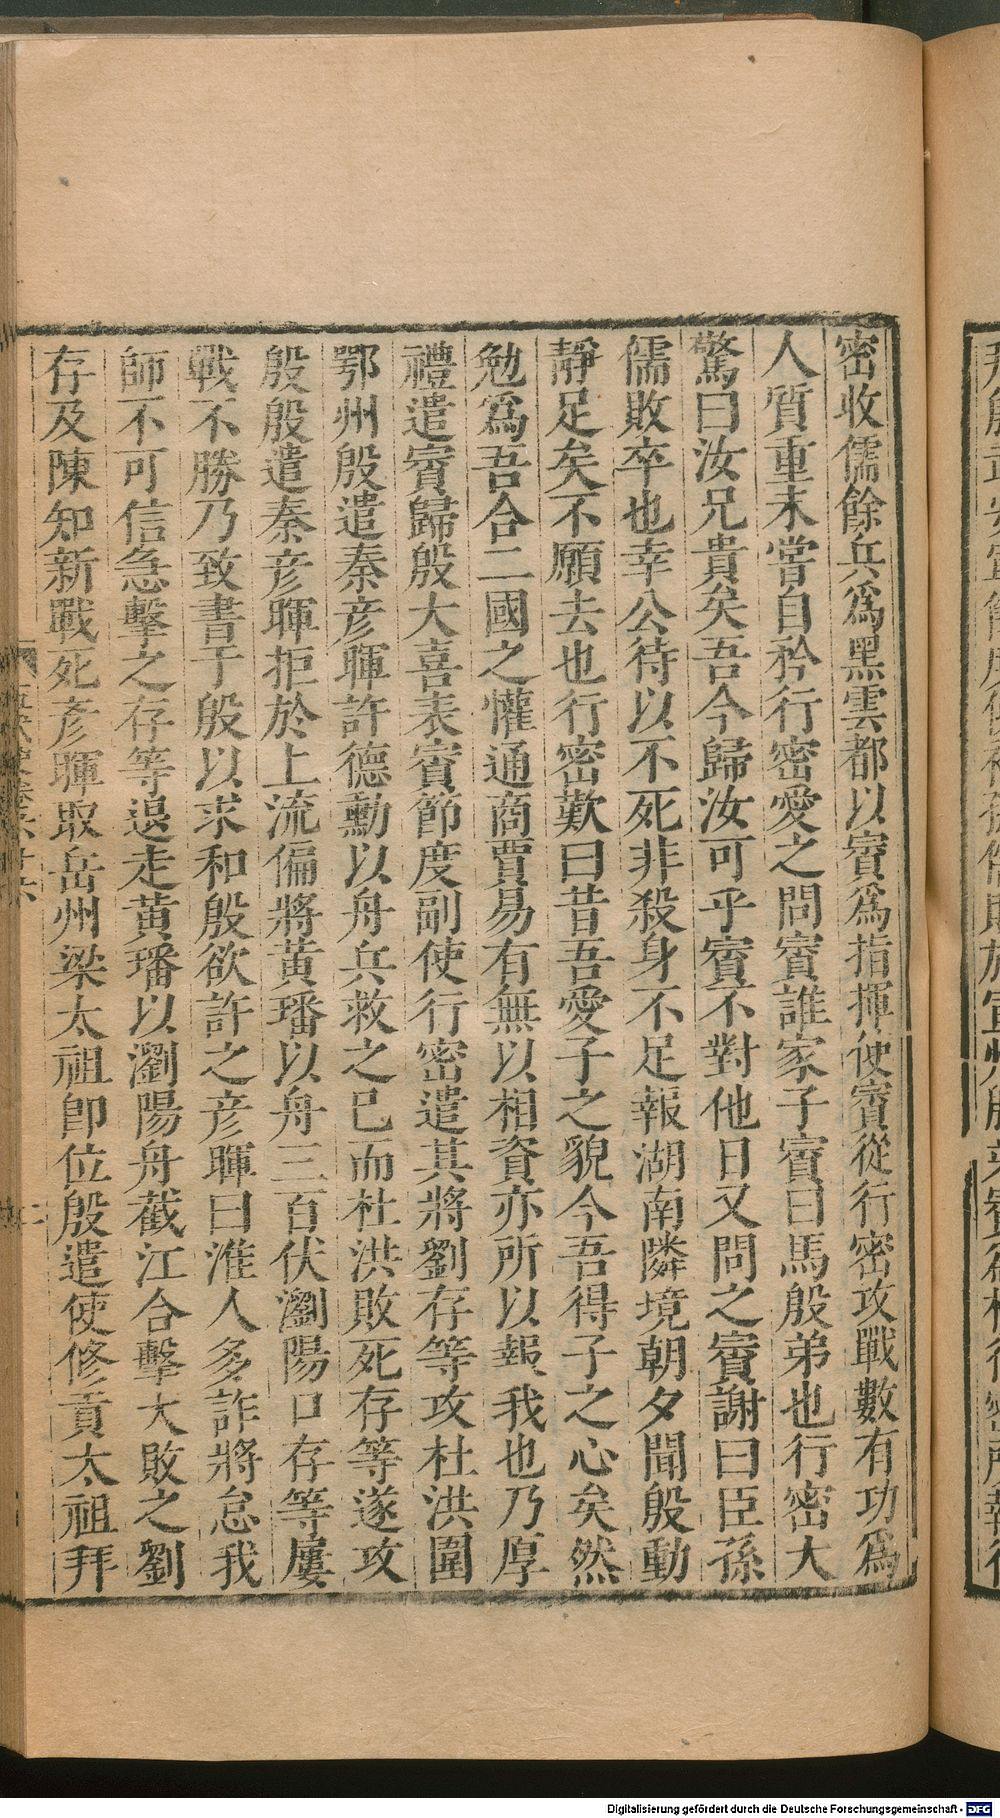 密收儒餘兵爲黑雲都以賨爲指揮使賨從行密攻戰數有功爲
人質重未嘗自矜行密愛之問賨誰家子賨曰馬殷弟也行密大
驚曰汝兄貴矣吾今歸汝可乎賨不對他日又問之賨謝曰臣孫
儒敗卒也幸公待以不死非殺身不足報湖南隣境朝夕聞殷動
靜足矣不願去也行密歎曰昔吾愛子之貌今吾得子之心矣然
勉爲吾合二國之懽通商賈易有無以相資亦所以報我也乃厚
禮遣賨歸殷大喜表賨節度副使行密遣其將劉存等攻杜洪圍
鄂州殷遣秦彥暉許德勳以舟兵救之已而杜洪敗死存等遂攻
殷殷遣秦彥暉拒於上流偏將黃璠以舟三百伏瀏陽口存等屢
戰不勝乃致書于殷以求和殷欲許之彥暉曰淮人多詐將怠我
師不可信急擊之存等退走黃璠以瀏陽舟截江合擊大敗之劉
存及陳知新戰死彥暉取岳州梁太祖卽位殷遣使修貢太祖拜
Digitalisierung gefördert durch die Deutsche Forschungsgemeinschaft - DFG